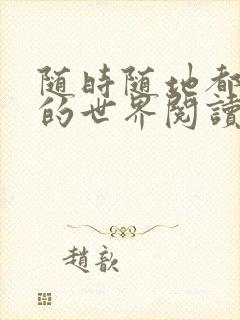 随時随地都
的世界閱讀
趙歆